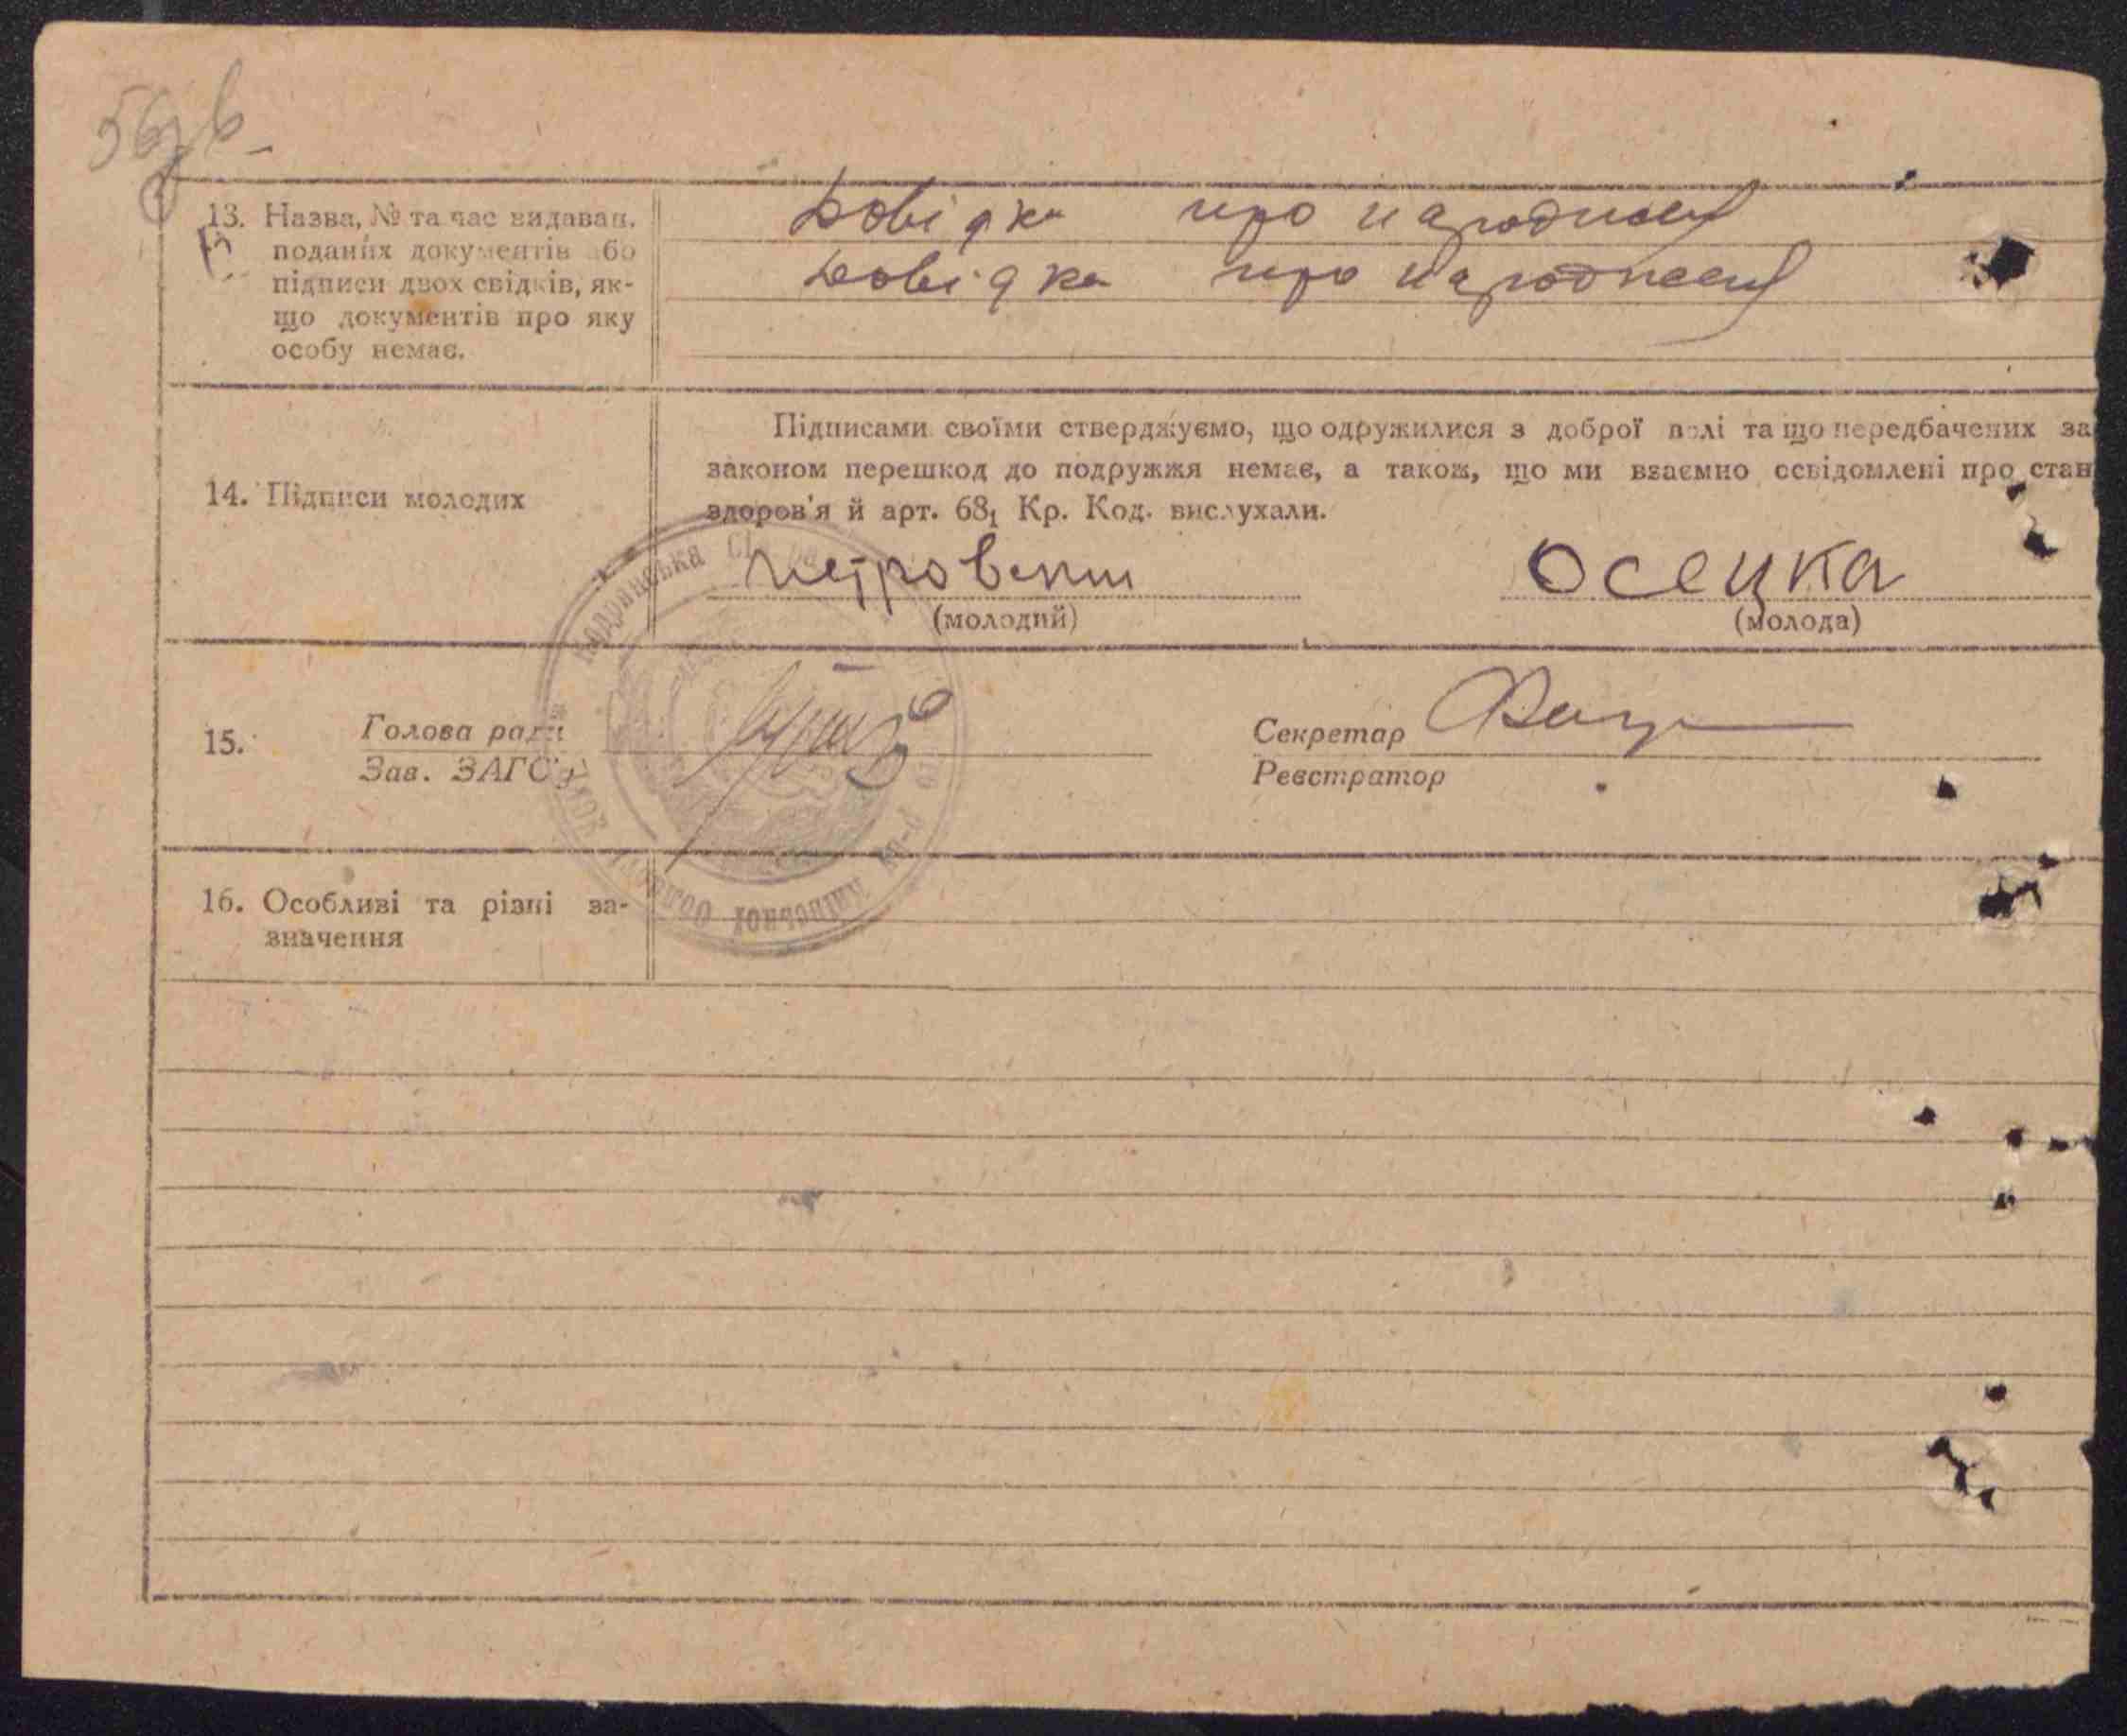 56зв
13. Назва, № та час видаван.
поданих документів або
підписи двох свідків, як-
що документів про яку
особу немає.
Довідка про народження
Довідка про народження
14. Підписи молодих
Підписами своїми стверджуємо, що одружилися з доброї волі та що передбачених за
законом перешкод до подружжя немає, а також, що ми взаємно освідомлені про стан
здоров'я й арт. 68₁ Кр. Код. вислухали.
Петровський
(молодий)
Осецка
(молода)
15. Голова ради
Зав. ЗАГС'у
Секретар
Реєстратор
16. Особливі та різні за-
значення
Київської Області